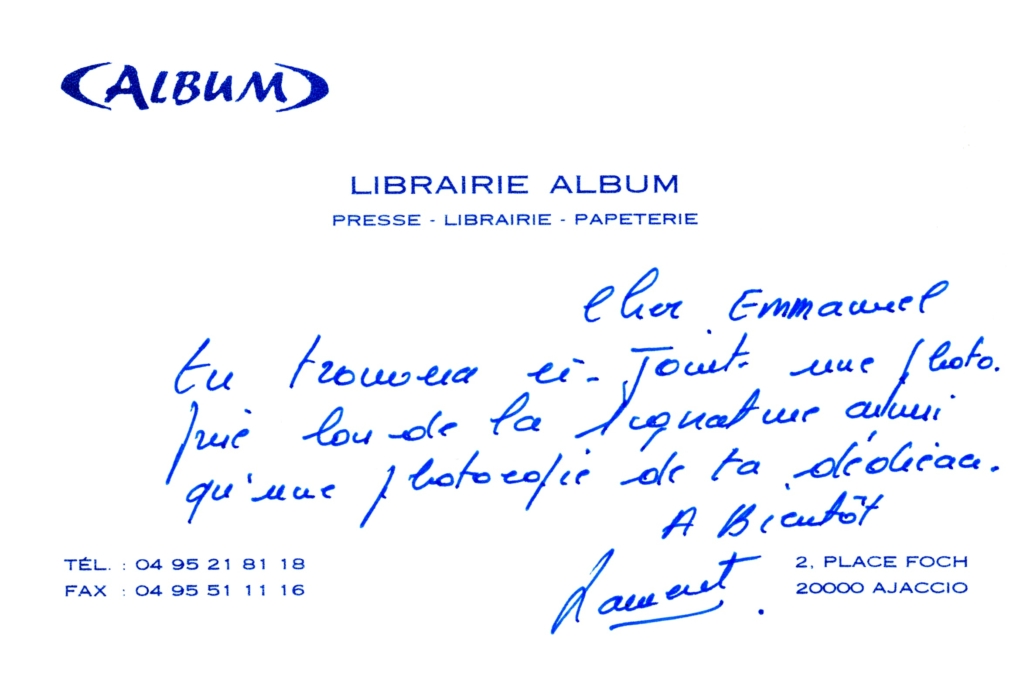 (ALBUM)
LIBRAIRIE ALBUM
PRESSE - LIBRAIRIE - PAPETERIE
Cher Emmanuel
tu trouvera ci-Joint une photo.
prise lors de la signature ainsi
qu'une photocopie de ta dédicace.
A Bientôt
Laurent.
TÉL. : 04 95 21 81 18
FAX : 04 95 51 11 16
2, PLACE FOCH
20000 AJACCIO